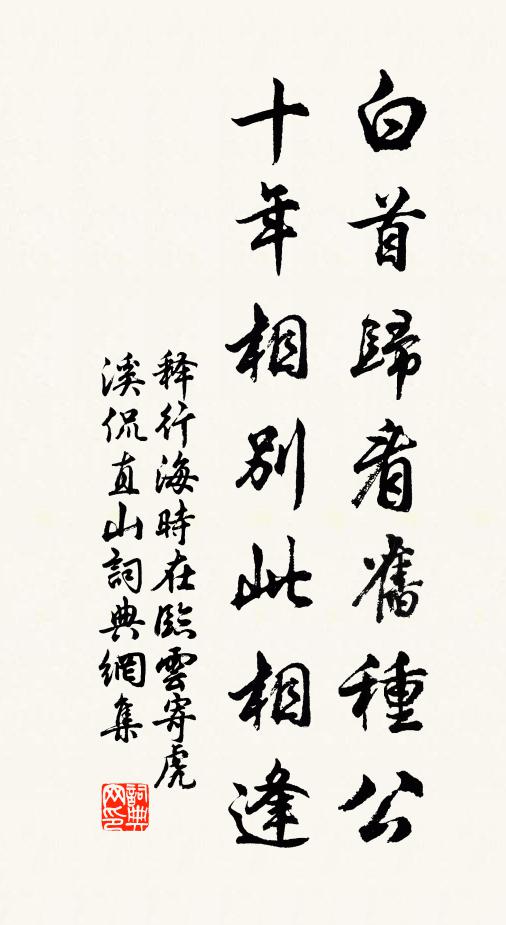 白首歸看舊種公
十年相別此相逢
释行海時在臨雲寄虎
溪侃直山詞典網集
詞典网印